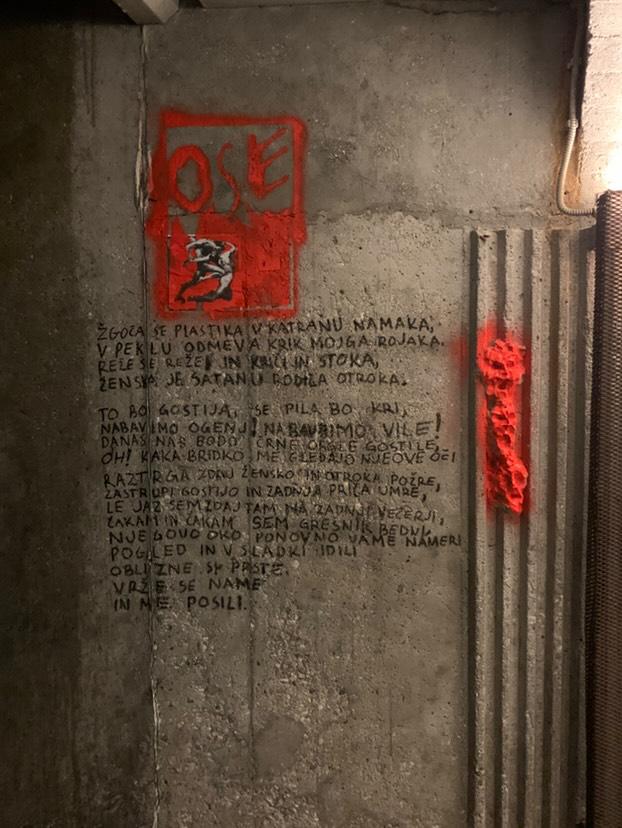 OSE
ŽGOČA SE PLASTIKA V KATRANU NAMAKA,
V PEKLU ODMEVA KRIK MOJGA ROJAKA.
REŽE SE REŽE IN KRIČI IN STOKA,
ŽENSKA JE SATANU RODILA OTROKA.
TO BO GOSTIJA, SE PILA BO KRI,
NABAVIMO OGENJ! NABAVIMO VILE!
DANAS NAS BODO ČRNE ORGLE GOSTILE,
OH! KAKA BRIDKO ME GLEDAJO NJEGOVE OČI
RAZTRGA ZDAJ ŽENSKO IN OTROKA POŽRE,
ZASTRUPI GOSTIJO IN ZADNJA PRIČA UMRE,
LE JAZ SEM ZDAJ TAM NA ZADNJI VEČERJI,
ČAKAM IN ČAKAM SEM GREŠNIK BEDNI,
NJEGOVO OKO PONOVNO VAME NAMERI
POGLED IN V SLADKI IDILI
OBLIZNE SI PRSTE.
VRŽE SE NAME
IN ME POSILI.